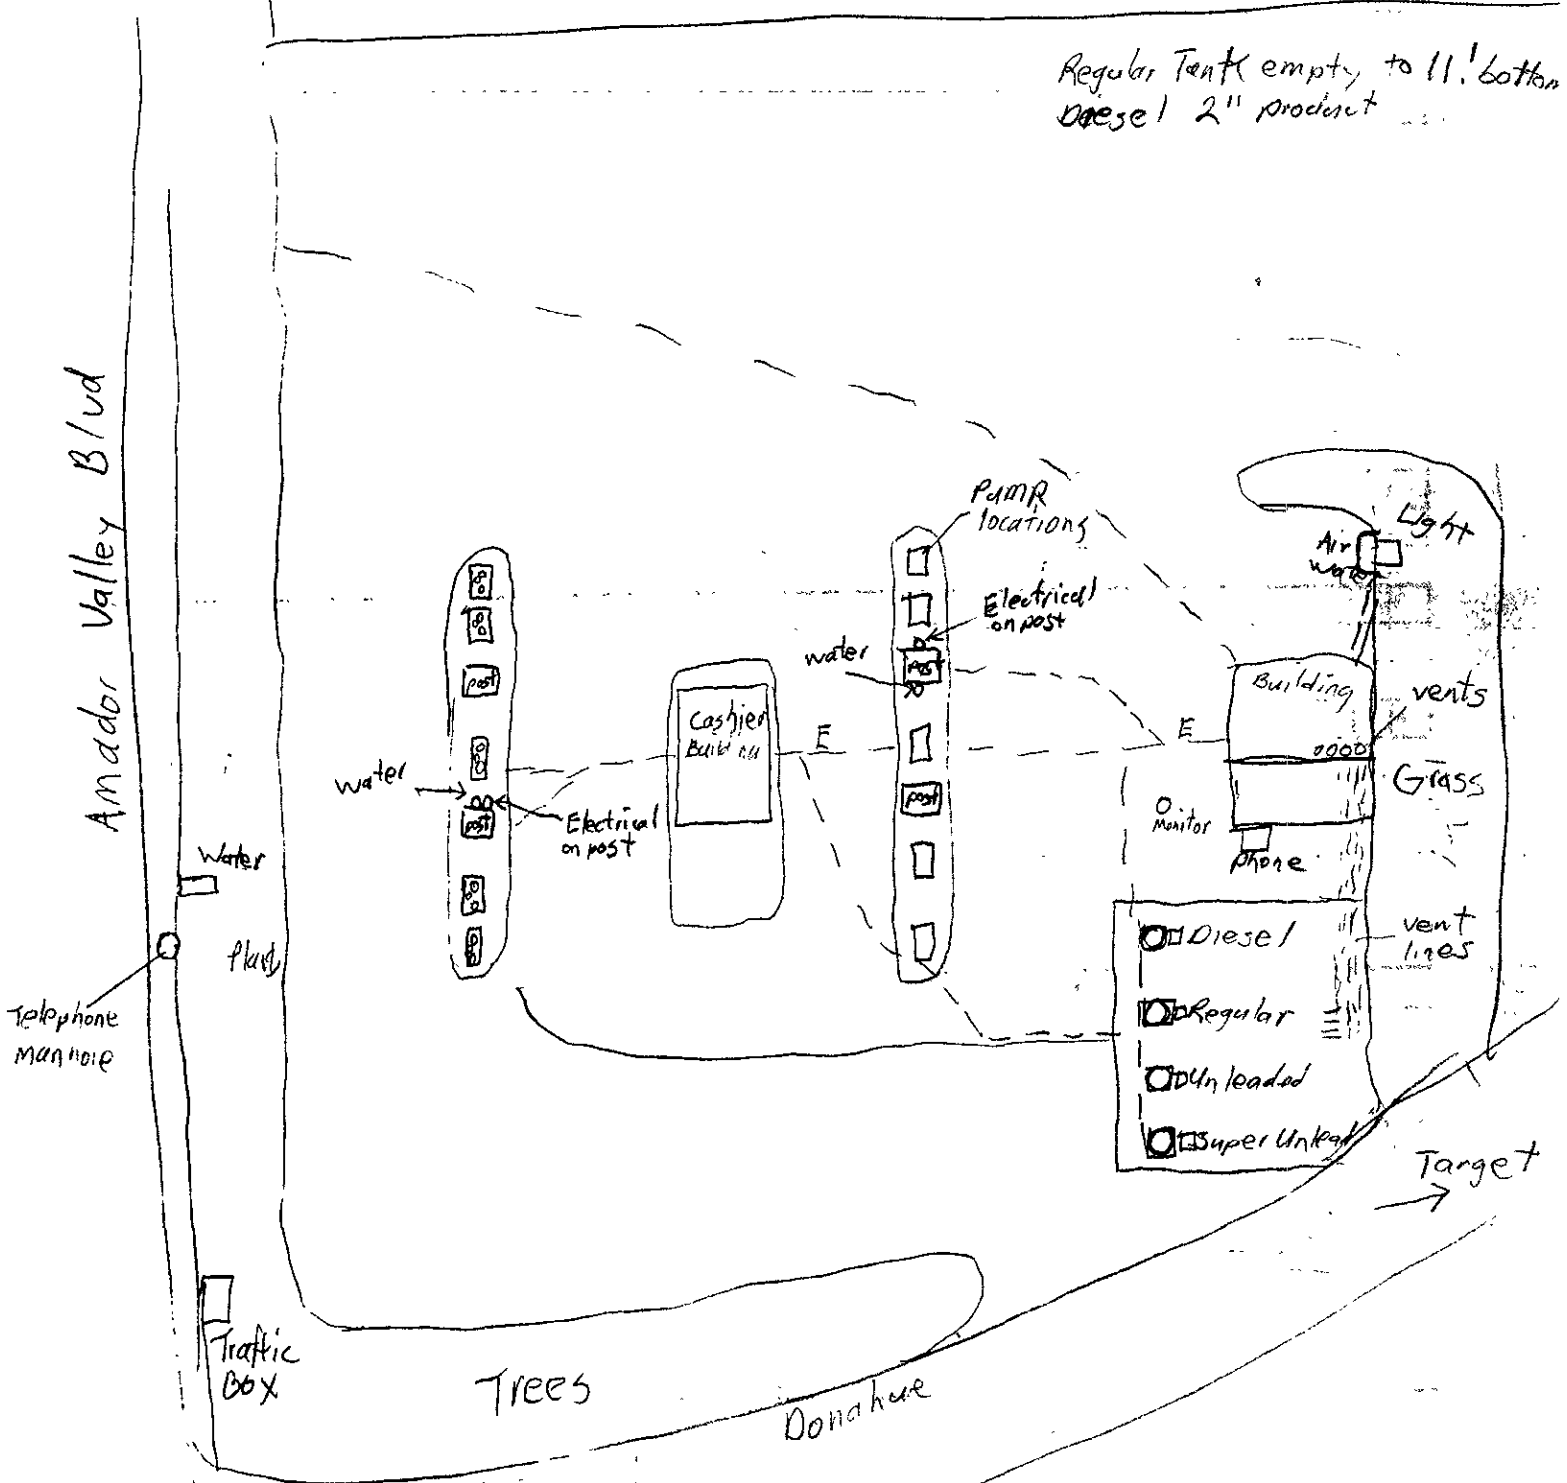 Regular Tank empty to 11.' bottom
Diesel 2" product
Amador Valley Blvd
Pump
locations
Light
Air
Water
Electrical
on post
water
post
post
Building
vents
Cashier
Building
E
E
oooo
Grass
post
water
post
Electrical
on post
Monitor
phone
Water
Diesel
vent
lines
Telephone
manhole
Regular
Unleaded
Super Unlead
Target
Traffic
Box
Trees
Donahue